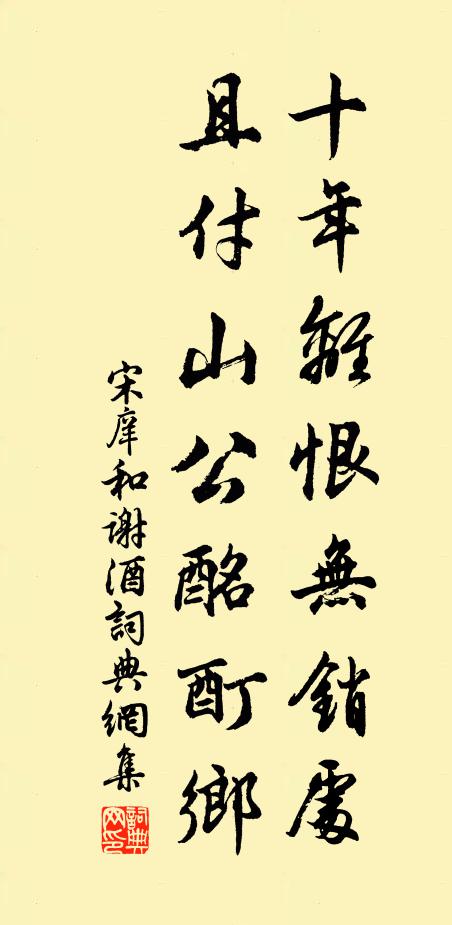 十年離恨無銷處
且付山公酩酊鄉
宋庠和谢酒詞典網集
詞典網印